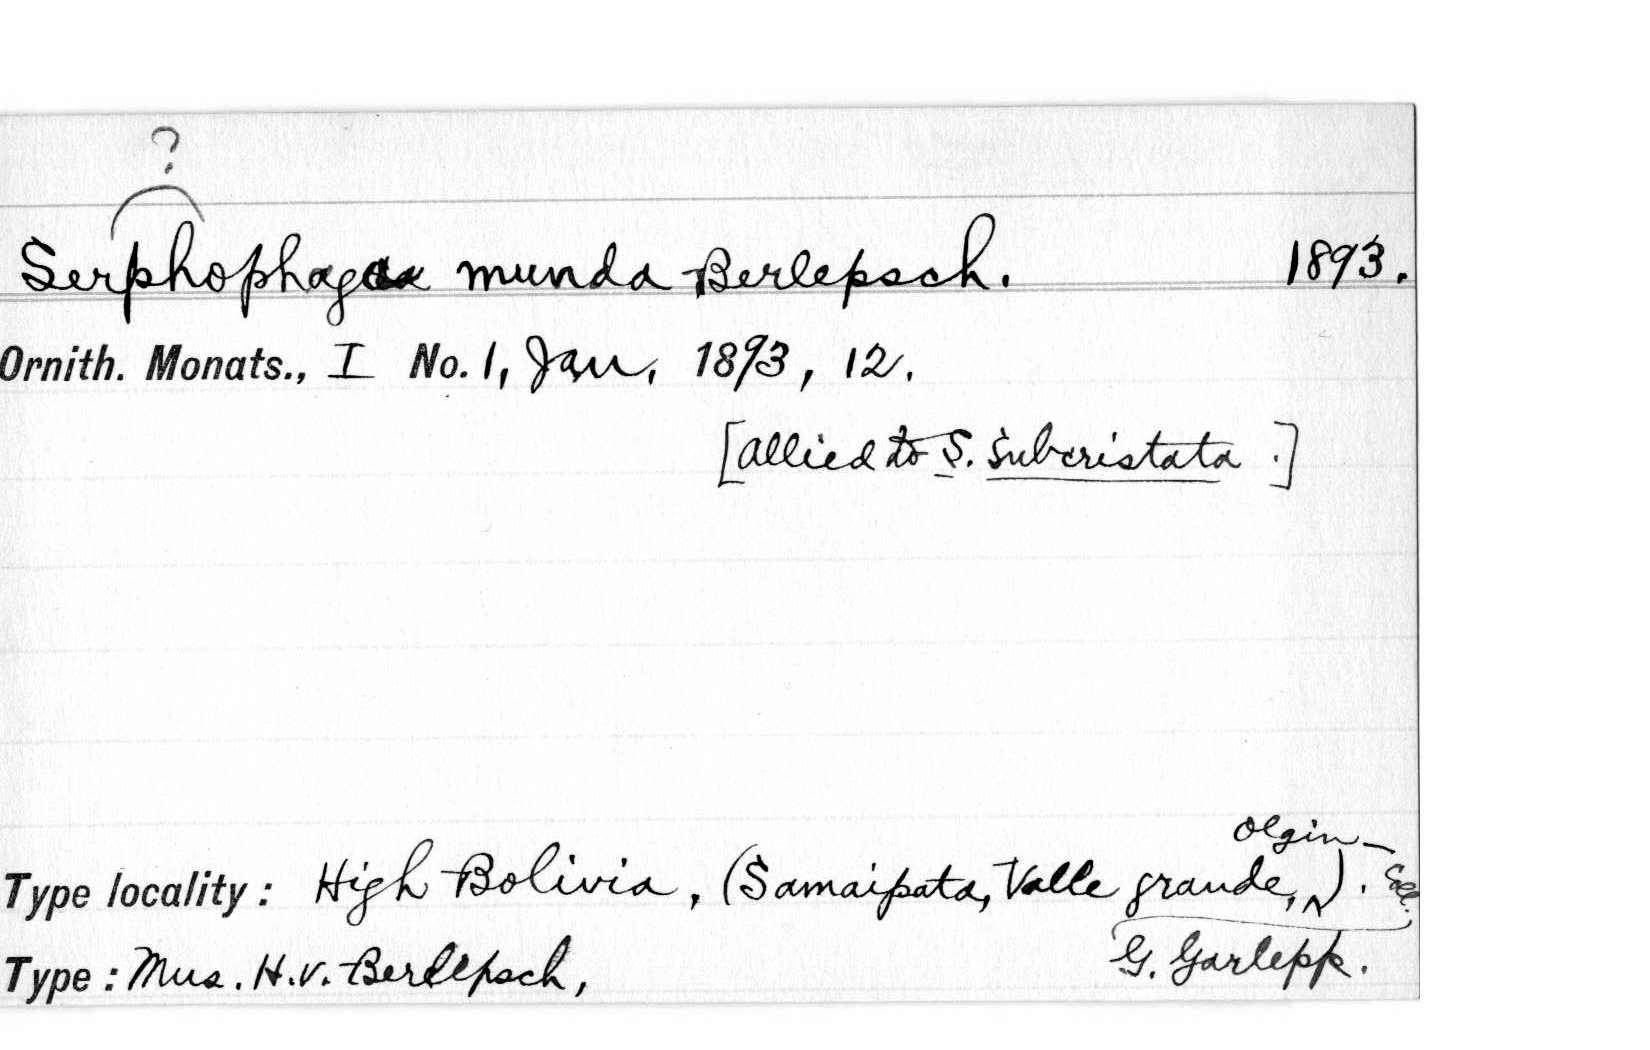 ?
Serphophaga munda Berlepsch. 1893.
Ornith. Monats., I No. 1, Jan, 1893, 12.
[allied to S. Subcristata.]
Olgin
Type locality: High Bolivia, (Samaipata, Valle grande,). Coll.
G. Garlepp.
Type: Mus. H.v. Berlepsch,